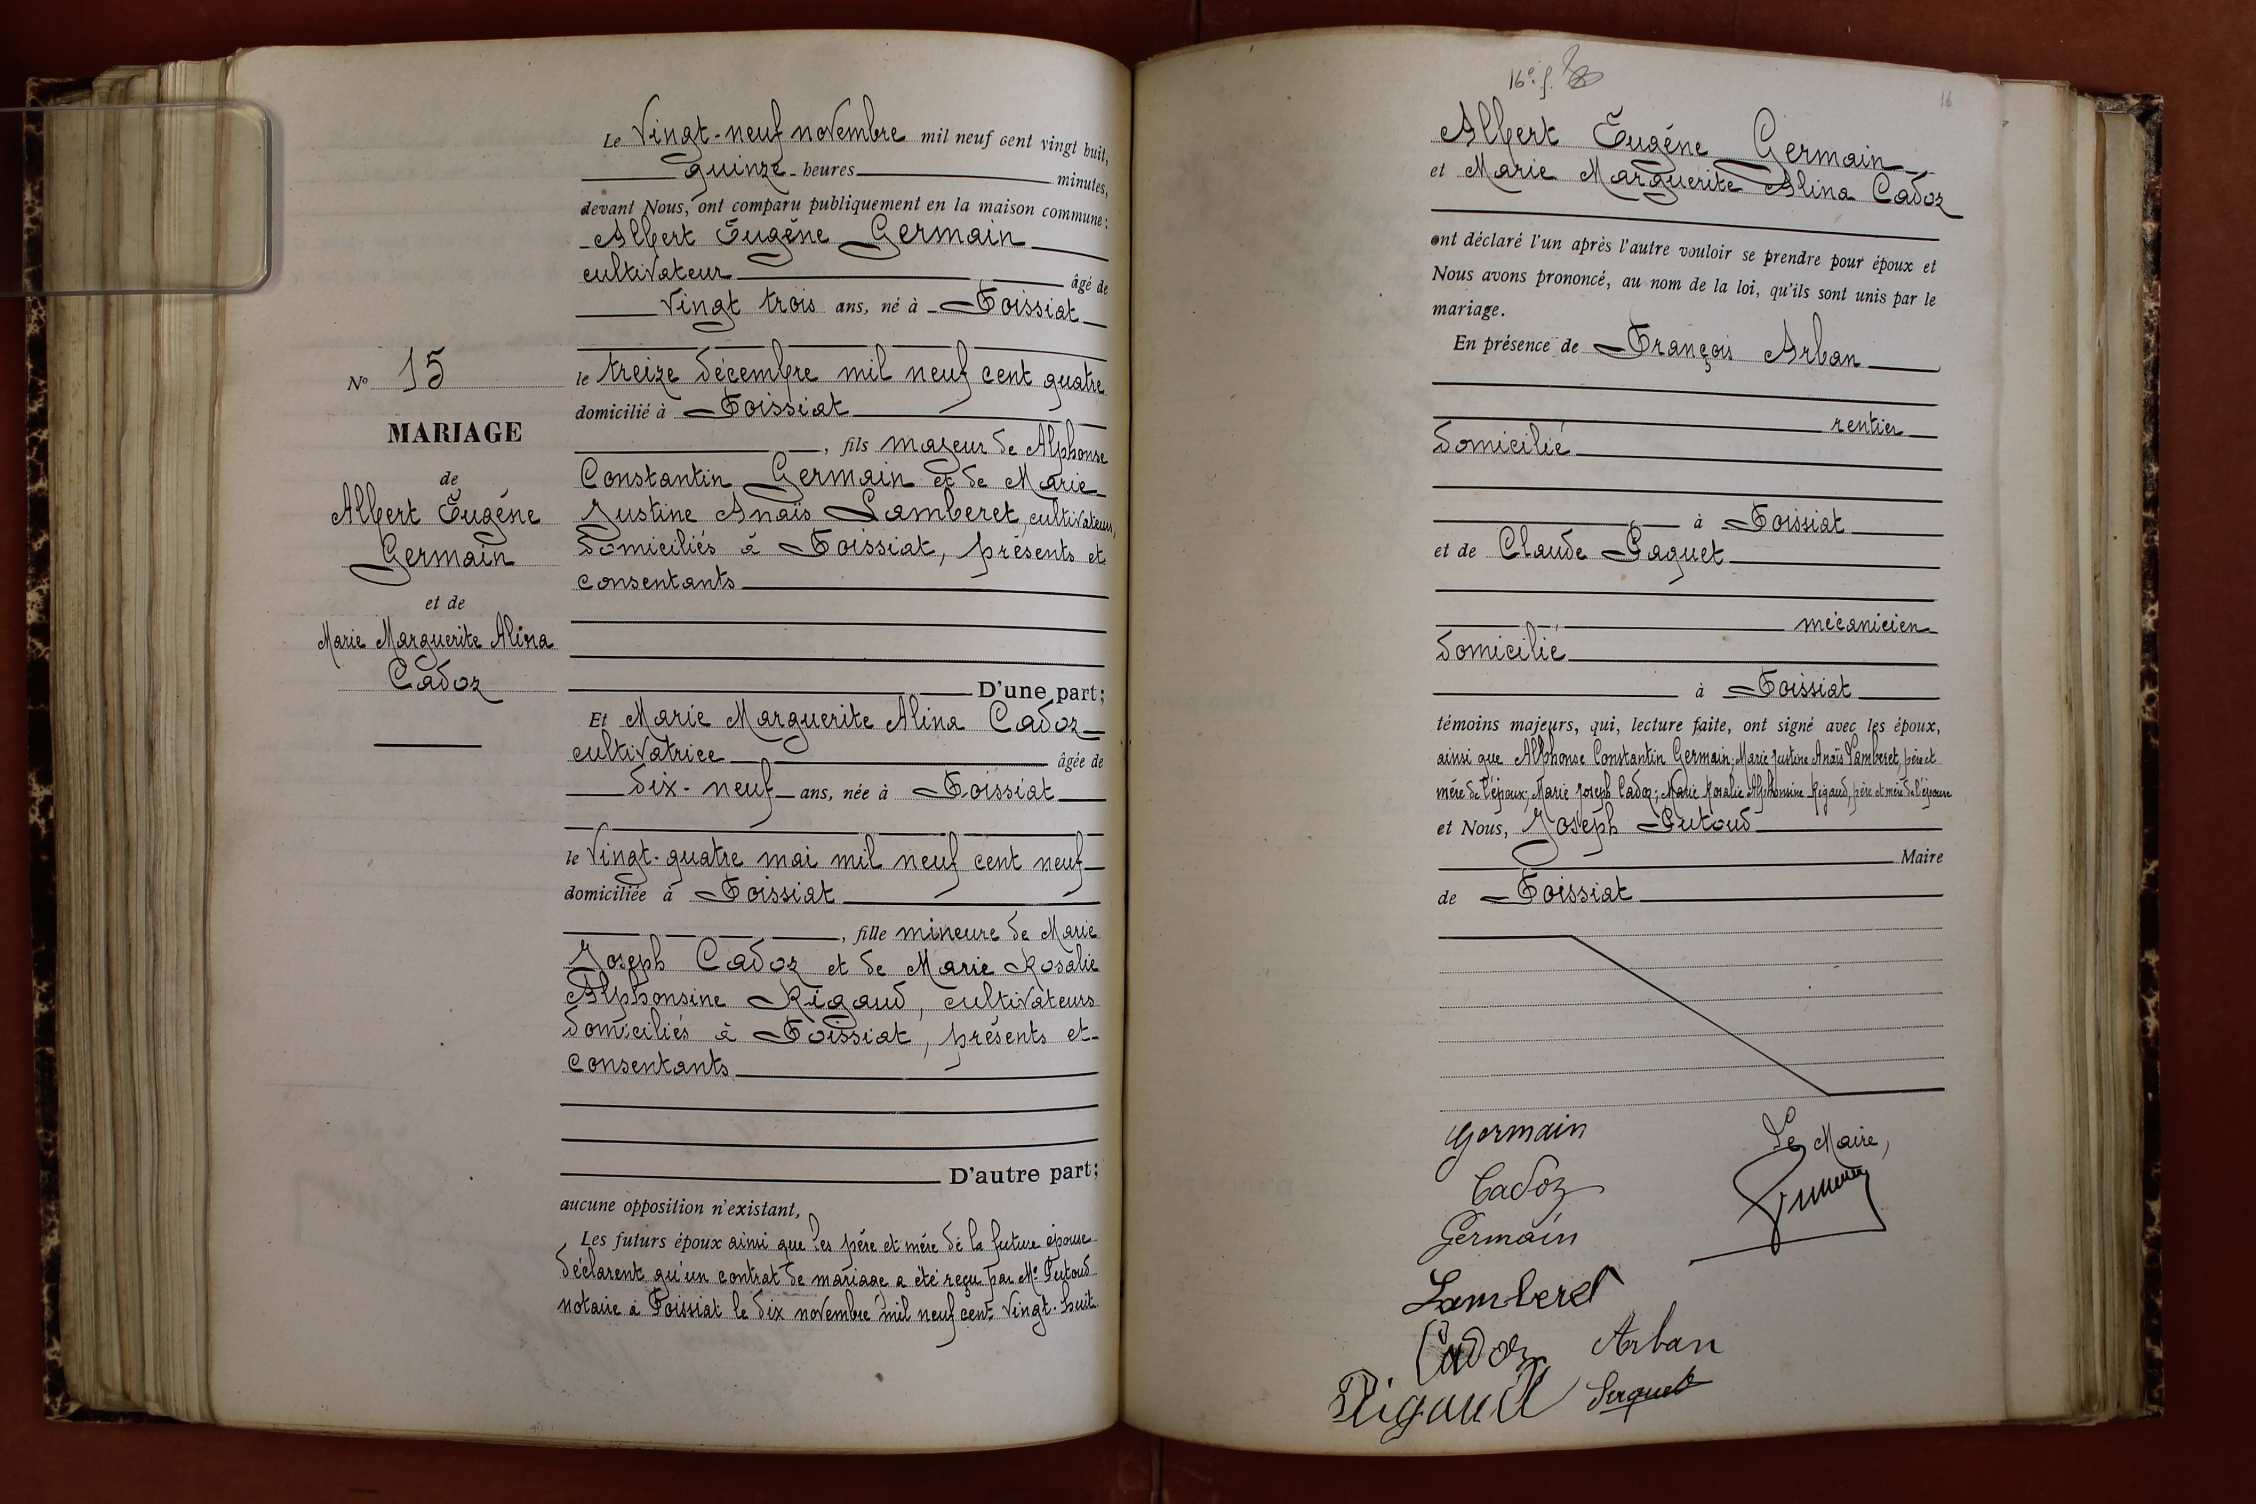 Le Vingt-neuf novembre mil neuf cent vingt huit,
quinze heures minutes,
devant Nous, ont comparu publiquement en la maison commune :
Albert Eugène Germain
cultivateur âgé de
vingt trois ans, né à Foissiat
le treize décembre mil neuf cent quatre
domicilié à Foissiat
, fils majeur de Alphonse
Constantin Germain et de Marie
Justine Anaïs Lamberet, cultivateurs,
domiciliés à Foissiat, présents et
consentants
D'une part ;
Nº 15
MARIAGE
de
Albert Eugène
Germain
et de
Marie Marguerite Alina
Cadoz
Et Marie Marguerite Alina Cadoz
cultivatrice âgée de
dix-neuf ans, née à Foissiat
le vingt-quatre mai mil neuf cent neuf
domiciliée à Foissiat
, fille mineure de Marie
Joseph Cadoz et de Marie Rosalie
Alphonsine Rigaud, cultivateurs
domiciliés à Foissiat, présents et
consentants
D'autre part ;
aucune opposition n'existant,
Les futurs époux ainsi que les père et mère de la future épouse
déclarent qu'un contrat de mariage a été reçu par Me Putoud
notaire à Foissiat le dix novembre mil neuf cent vingt-huit
16e f.
16
Albert Eugène Germain
et Marie Marguerite Alina Cadoz
ont déclaré l'un après l'autre vouloir se prendre pour époux et
Nous avons prononcé, au nom de la loi, qu'ils sont unis par le
mariage.
En présence de François Arban
rentier
domicilié
à Foissiat
et de Claude Paquet
mécanicien
domicilié
à Foissiat
témoins majeurs, qui, lecture faite, ont signé avec les époux,
ainsi que Alphonse Constantin Germain; Marie Justine Anaïs Lamberet, père et
mère de l'époux; Marie Joseph Cadoz; Marie Rosalie Alphonsine Rigaud, père et mère de l'épouse
et Nous, Joseph Putoud
Maire
de Foissiat
Germain
Le Maire,
Cadoz
Germain
Lamberet
Cadoz Arban
Rigaud